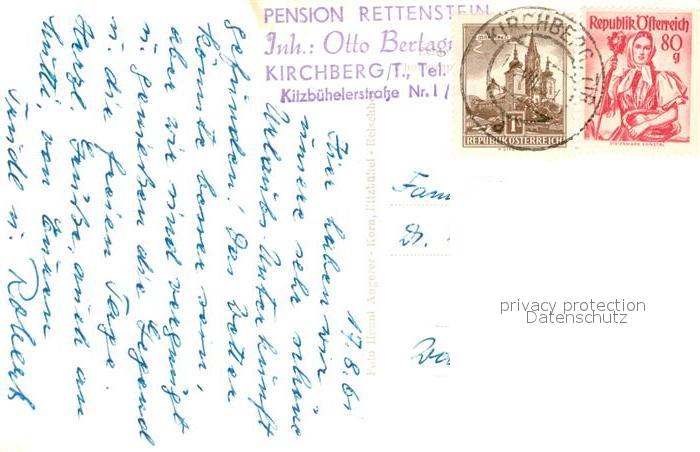 PENSION RETTENSTEIN
Inh.: Otto Bertag
KIRCHBERG/T., Tel.
Kitzbühelerstraße Nr. 1 /
KIRCHBERG
1
REPUBLIK ÖSTERREICH
Republik Österreich
80
g
STEIERMARK ENNSTAL
17.8.61
Hier haben wir
unsere sehr schöne
Urlaubs Unterkunft
gefunden! Das Wetter
könnte besser sein,
aber wir sind vergnügt
u. genießen die Gegend
u. die freien Tage.
Herzl. Grüße, auch an
von Euren
Trude u. Robert
Foto Henni Angerer - Korn, Kitzbühel - Reischhof
Fam
Dr.
privacy protection
Datenschutz